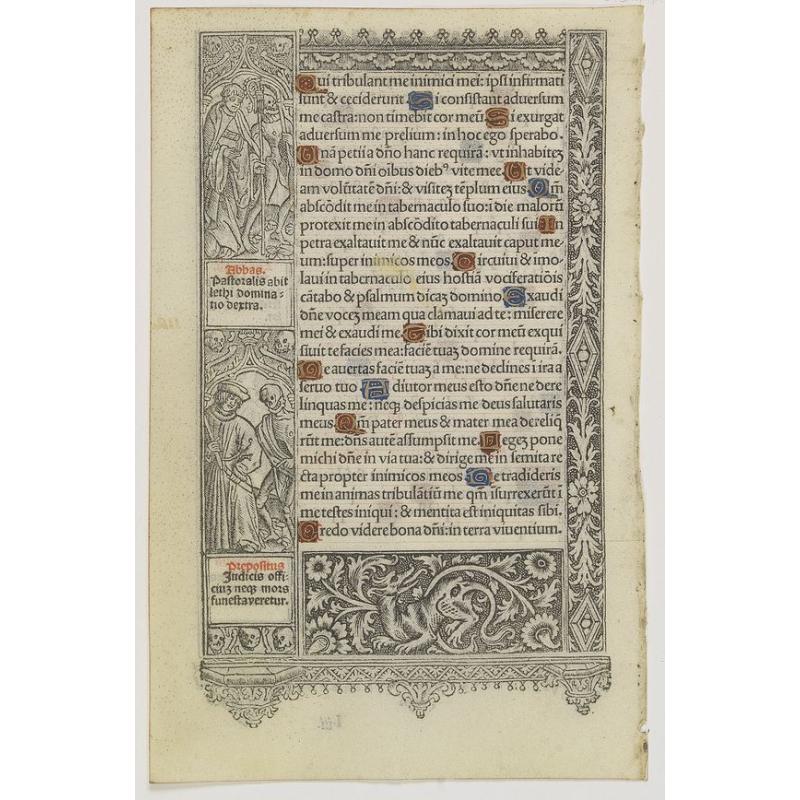 Qui tribulant me inimici mei: ipsi infirmati
sunt & ceciderunt Si consistant aduersum
me castra: non timebit cor meū Si exurgat
aduersum me prelium: in hoc ego sperabo.
Unā petii a dño hanc requirā: vt inhabiteȝ
in domo dñi oībus diebꝰ vite mee. Ut vide-
am volūtatē dñi: & visiteȝ tēplum eius. Qm̄
abscōdit me in tabernaculo suo: ī die malorū
protexit me in abscōdito tabernaculi sui In
petra exaltauit me & nūc exaltauit caput me-
um: super inimicos meos. Circuiui & īmo-
laui in tabernaculo eius hostiā vociferatiōis
cātabo & psalmum dicaȝ domino. Exaudi
dñe voceȝ meam qua clamaui ad te: miserere
mei & exaudi me. Tibi dixit cor meū exqui
siuit te facies mea: faciē tuaȝ domine requirā.
Ne auertas faciē tuaȝ a me: ne declines ī ira a
seruo tuo Adiutor meus esto dñe ne dere
linquas me: neqȝ despicias me deus salutaris
meus. Qm̄ pater meus & mater mea dereliq̄
rūt me: dñs autē assumpsit me. Legeȝ pone
michi dñe in via tua: & dirige me in semita re
cta propter inimicos meos. Ne tradideris
me in animas tribulātiū me qm̄ īsurrexerūt ī
me testes iniqui: & mentita est iniquitas sibi.
Credo videre bona dñi: in terra viuentium.
Abbas.
Pastoralis abit
lethi domina-
tio dextra.
Prepositus
Iudicis offi-
ciuȝ neqȝ mors
funesta veretur.